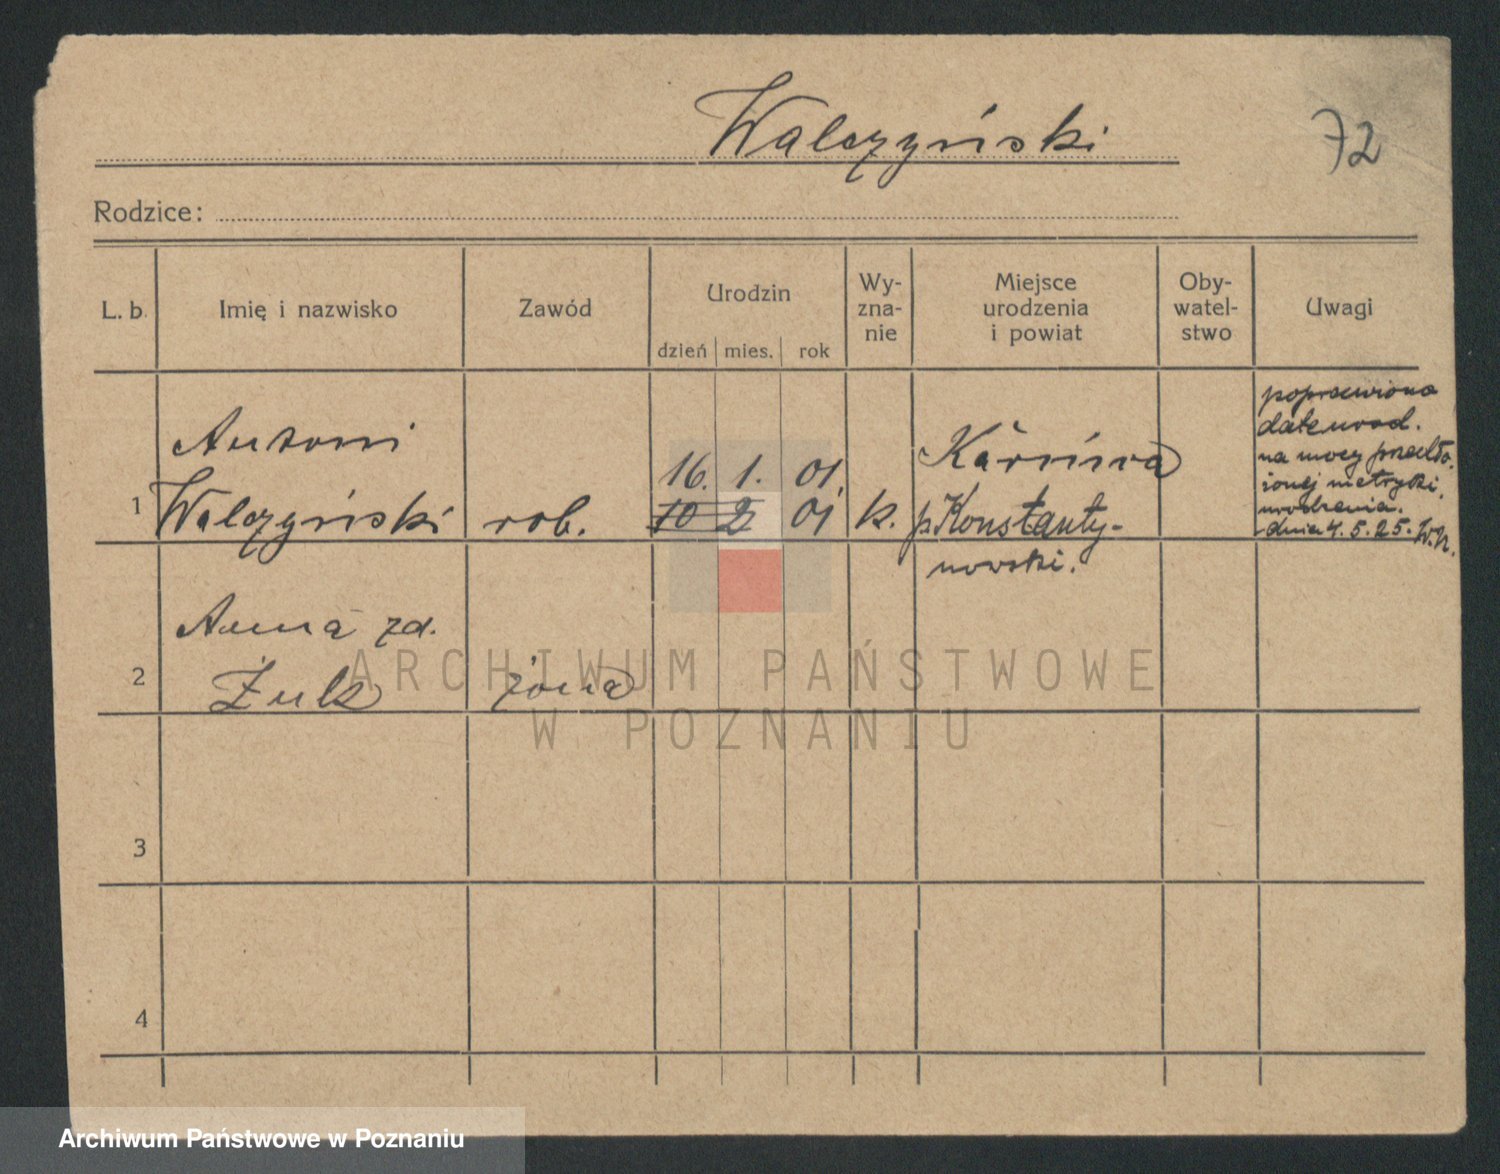 Walczyński
72
Rodzice:
L. b.
Imię i nazwisko
Zawód
Urodzin
dzień mies. rok
Wy-
zna-
nie
Miejsce
urodzenia
i powiat
Oby-
watel-
stwo
Uwagi
1
Antoni
Walczyński
rob.
16. 1. 01.
10 2 01
k.
p. Konstanty-
nowski.
poprawiono
datę urod.
na mocy przedło-
żonej metryki
urodzenia.
dnia 4.5.25.
2
Anna zd.
Żuk
żona
3
4
ARCHIWUM PAŃSTWOWE
W POZNANIU
Archiwum Państwowe w Poznaniu